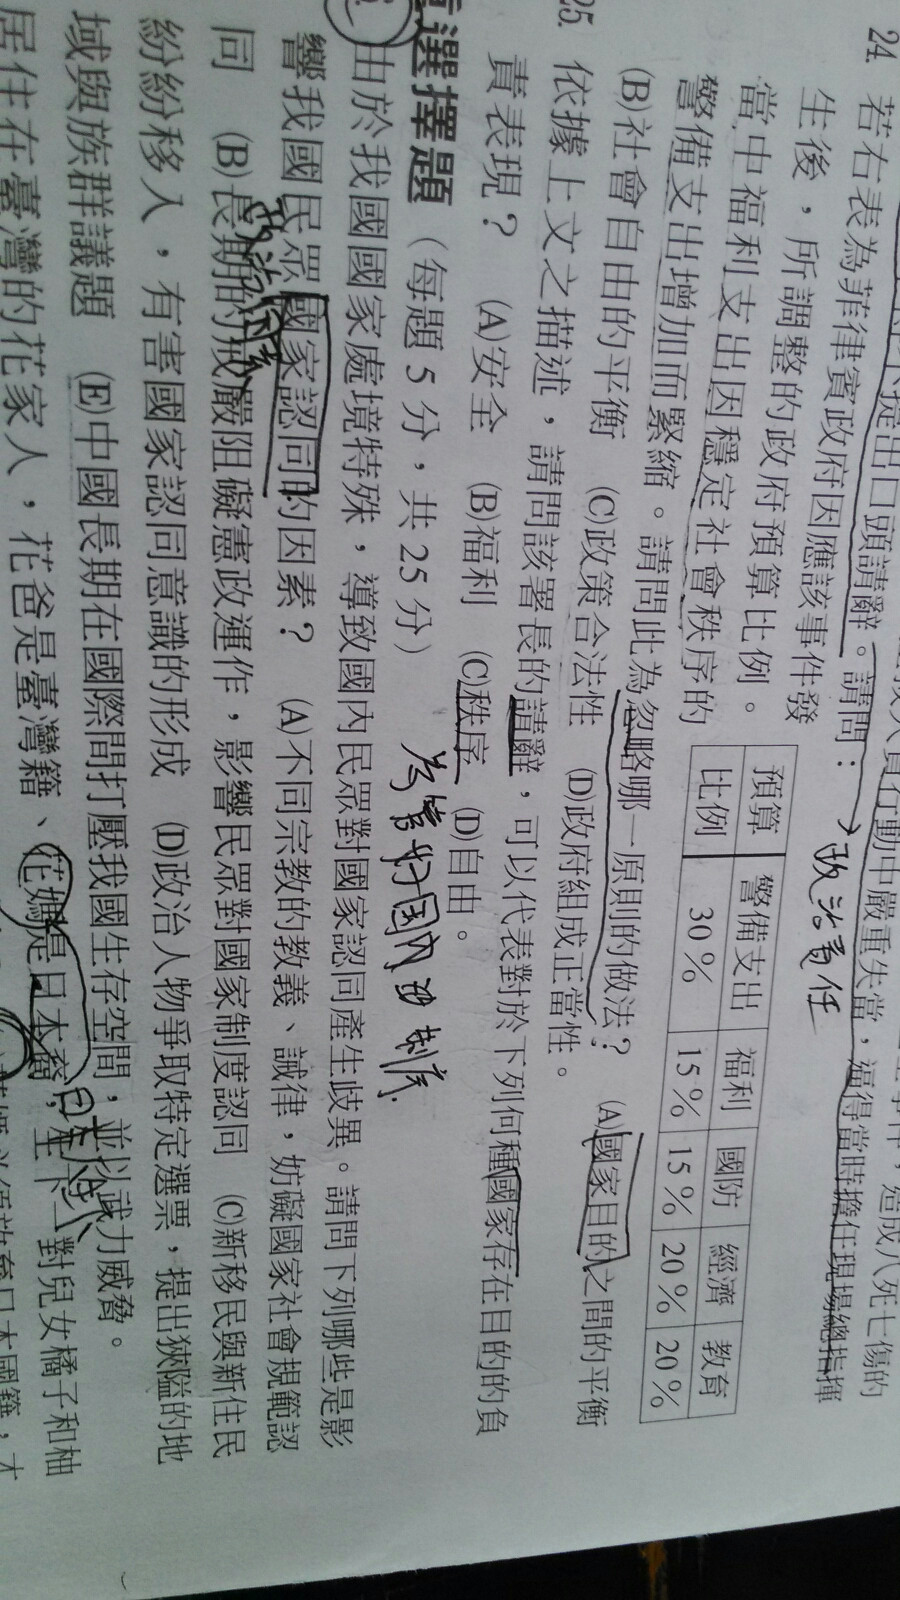 不提出口頭請辭。請問：
行動中嚴重失當，逼得當時擔任現場總指揮
造成八死七傷的
→政治責任
24. 若右表為菲律賓政府因應該事件發
生後，所調整的政府預算比例。
當中福利支出因穩定社會秩序的
警備支出增加而緊縮。請問此為忽略哪一原則的做法？ (A)國家目的之間的平衡
(B)社會自由的平衡 (C)政策合法性 (D)政府組成正當性。
預算 警備支出 福利 國防 經濟 教育
比例 30% 15% 15% 20% 20%
25. 依據上文之描述，請問該署長的請辭，可以代表對於下列何種國家存在目的的負
責表現？ (A)安全 (B)福利 (C)秩序 (D)自由。
選擇題（每題 5 分，共 25 分）
由於我國國家處境特殊，導致國內民眾對國家認同產生歧異。請問下列哪些是影
響我國民眾國家認同的因素？ (A)不同宗教的教義、誡律，妨礙國家社會規範認
同 (B)長期的戒嚴阻礙憲政運作，影響民眾對國家制度認同 (C)新移民與新住民
紛紛移入，有害國家認同意識的形成 (D)政治人物爭取特定選票，提出狹隘的地
域與族群議題 (E)中國長期在國際間打壓我國生存空間，並以武力威脅。
居住在臺灣的花家人，花爸是臺灣籍、花媽是日本裔，生下一對兒女橘子和柚